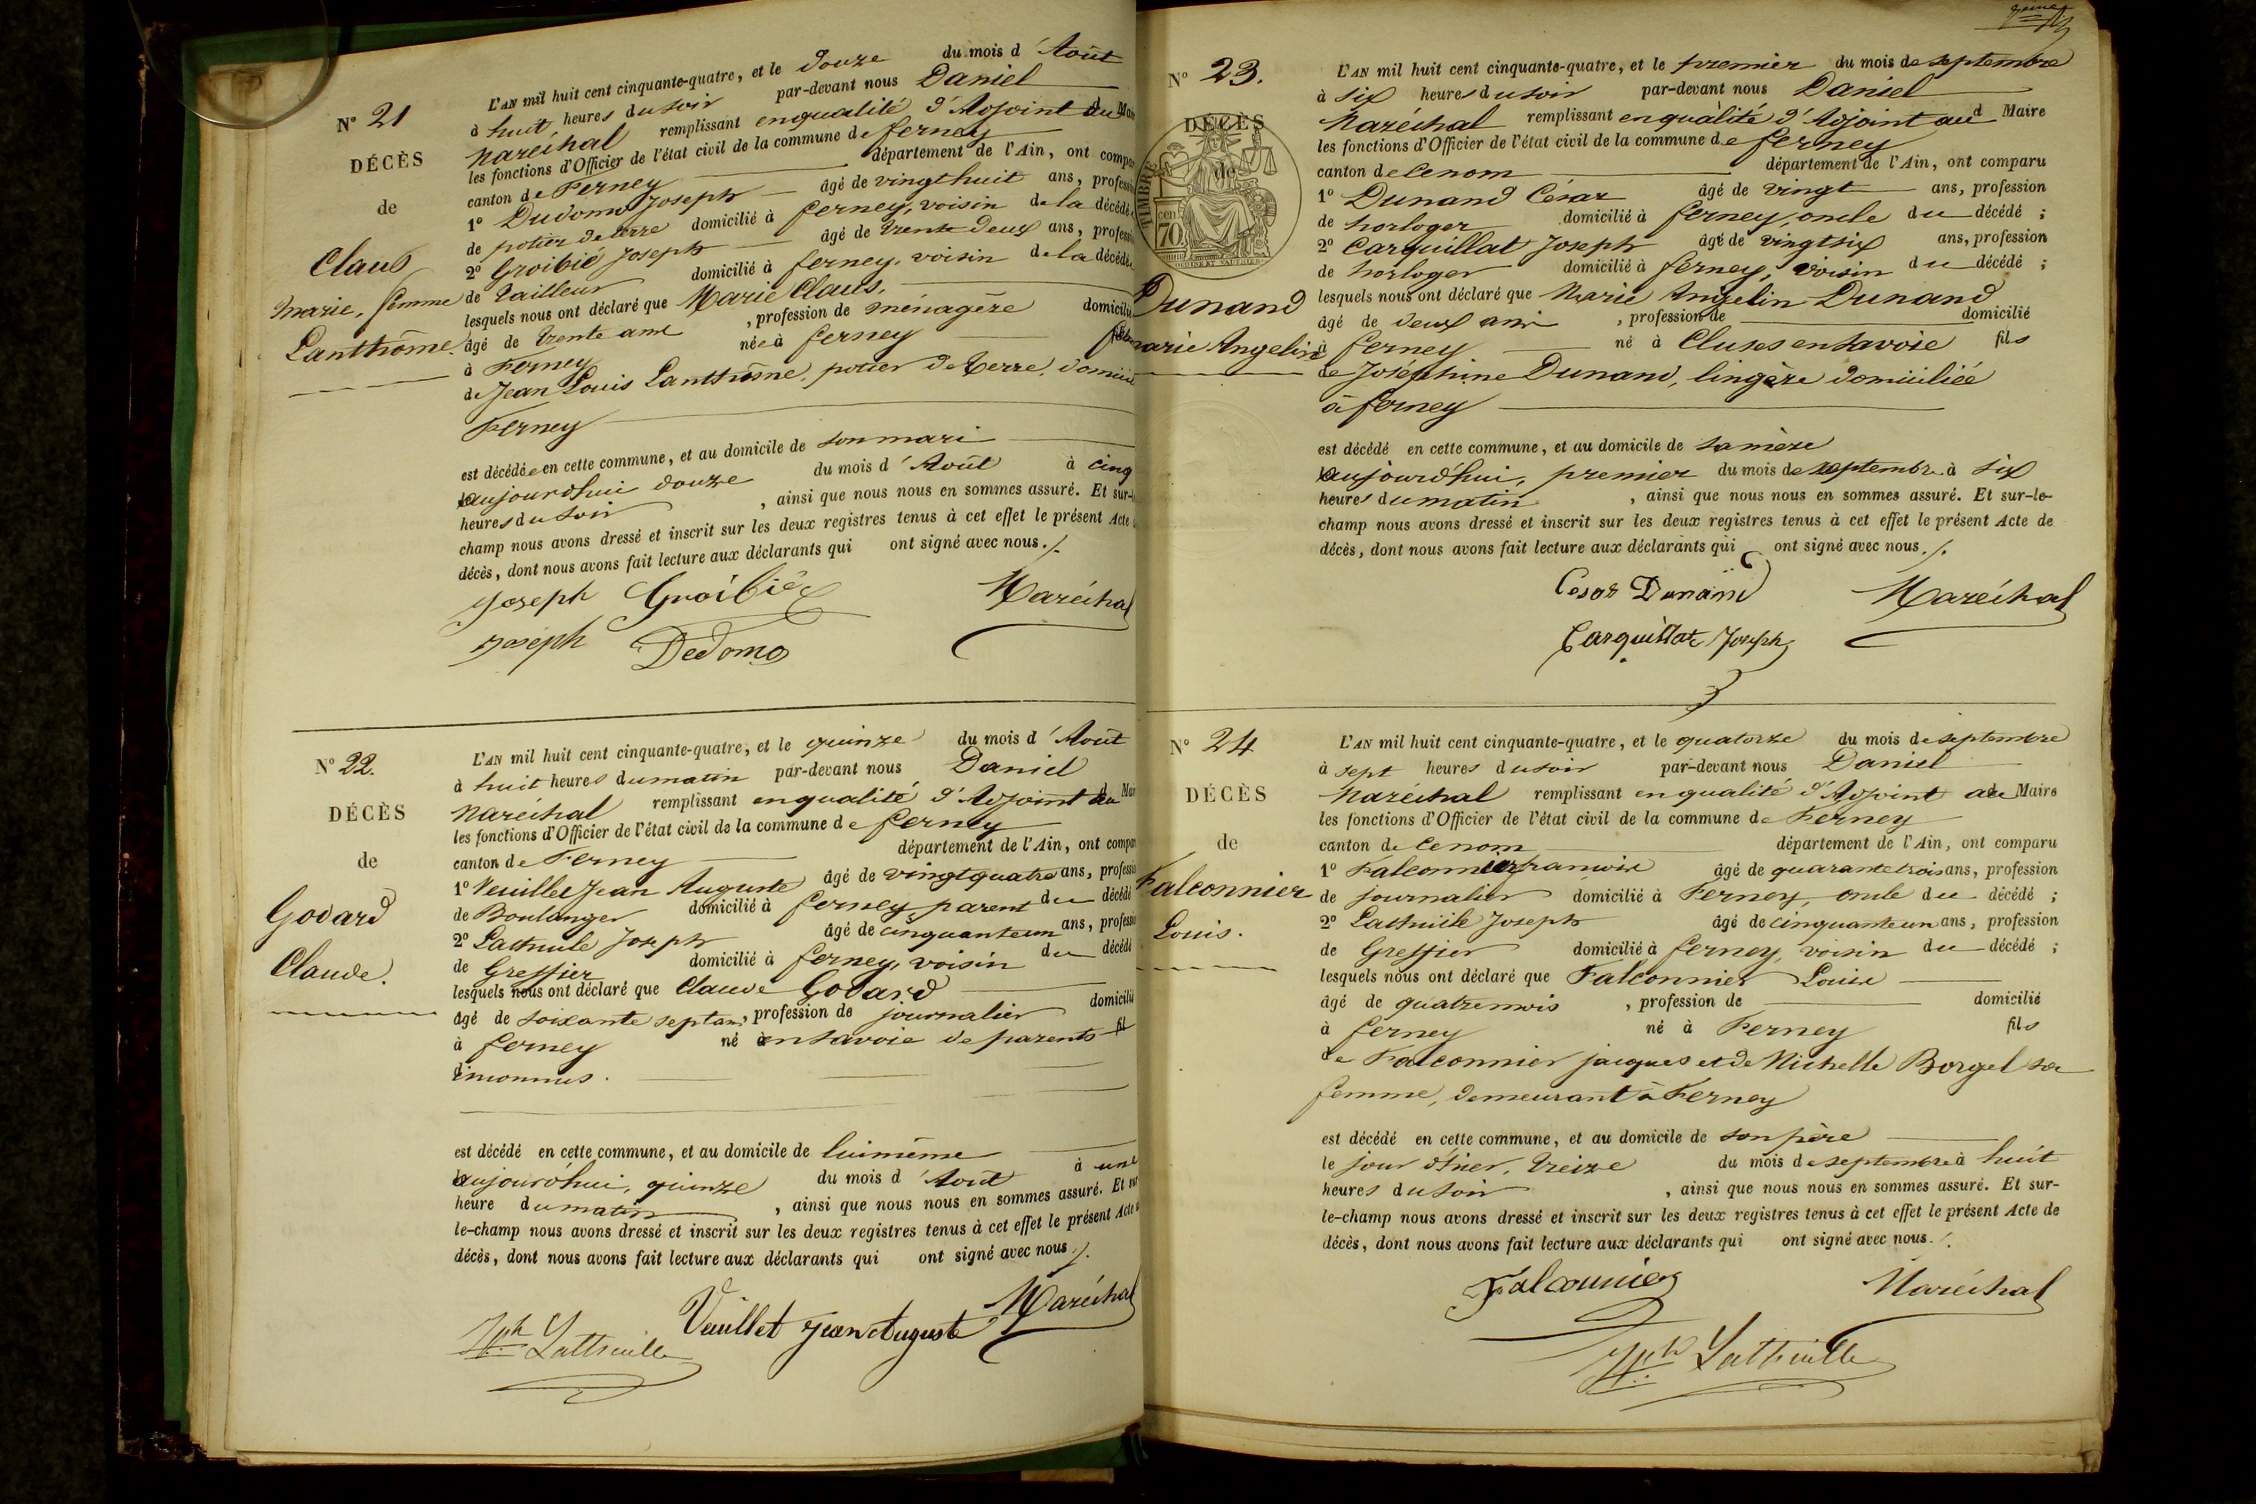 N° 21
DÉCÈS
de
Claus
Marie, femme
Lanthôme.
L'AN mil huit cent cinquante-quatre, et le douze du mois d'Août
à huit heures du soir par-devant nous Daniel
Maréchal remplissant en qualité d'Adjoint au Maire
les fonctions d'Officier de l'état civil de la commune de Ferney
canton de Ferney département de l'Ain, ont compar
1° Dudomo Joseph âgé de vingt huit ans, profession
de potier de terre domicilié à Ferney, voisin de la décédée
2° Groibié Joseph âgé de trente deux ans, profession
de tailleur domicilié à Ferney, voisin de la décédée
lesquels nous ont déclaré que Marie Claus,
âgé de trente ans , profession de ménagère domicilié
à Ferney née à Ferney
de Jean Louis Lanthôme, potier de terre, domicilié
Ferney
est décédée en cette commune, et au domicile de son mari
aujourdhui douze du mois d'Août à cinq
heures du soir , ainsi que nous nous en sommes assuré. Et sur-le-
champ nous avons dressé et inscrit sur les deux registres tenus à cet effet le présent Acte
décès, dont nous avons fait lecture aux déclarants qui ont signé avec nous./.
Joseph Groibié Maréchal
Joseph Dedomo
N° 22.
DÉCÈS
de
Godard
Claude.
L'AN mil huit cent cinquante-quatre, et le quinze du mois d'Août
à huit heures du matin par-devant nous Daniel
Maréchal remplissant en qualité d'Adjoint au Mair
les fonctions d'Officier de l'état civil de la commune de Ferney
canton de Ferney département de l'Ain, ont compar
1° Veuillet Jean Auguste âgé de vingt quatre ans, profession
de Boulanger domicilié à Ferney parent du décédé
2° Lathuile Joseph âgé de cinquante un ans, profession
de Greffier domicilié à Ferney, voisin du décédé
lesquels nous ont déclaré que Claude Godard
âgé de soixante sept ans, profession de journalier domicilié
à Ferney né en Savoie de parents fil
inconnus.
est décédé en cette commune, et au domicile de lui même
aujourd'hui, quinze du mois d'Août à une
heure du matin , ainsi que nous nous en sommes assuré. Et sur
le-champ nous avons dressé et inscrit sur les deux registres tenus à cet effet le présent Acte
décès, dont nous avons fait lecture aux déclarants qui ont signé avec nous./.
Jph Lathuille Veuillet Jean Auguste Maréchal
N° 23.
DÉCÈS
de
TIMBRE
70
Dunand
Marie Angelin
L'AN mil huit cent cinquante-quatre, et le premier du mois de septembre
à six heures du soir par-devant nous Daniel
Maréchal remplissant en qualité d'Adjoint au Maire
les fonctions d'Officier de l'état civil de la commune de Ferney
canton de le nom département de l'Ain, ont comparu
1° Dunand César âgé de vingt ans, profession
de horloger domicilié à Ferney, oncle du décédé ;
2° Carquillat Joseph âgé de vingt six ans, profession
de horloger domicilié à Ferney, voisin du décédé ;
lesquels nous ont déclaré que Marie Angelin Dunand
âgé de deux ans , profession de domicilié
à Ferney né à Cluses en Savoie fils
de Joséphine Dunand, lingère domiciliée
à Ferney
est décédé en cette commune, et au domicile de sa mère
aujourd'hui, premier du mois de septembre à six
heures du matin , ainsi que nous nous en sommes assuré. Et sur-le-
champ nous avons dressé et inscrit sur les deux registres tenus à cet effet le présent Acte de
décès, dont nous avons fait lecture aux déclarants qui ont signé avec nous./.
Cesar Dunand Maréchal
Carquillat Joseph
N° 24
DÉCÈS
de
Falconnier
Louis.
L'AN mil huit cent cinquante-quatre, et le quatorze du mois de septembre
à sept heures du soir par-devant nous Daniel
Maréchal remplissant en qualité d'Adjoint au Maire
les fonctions d'Officier de l'état civil de la commune de Ferney
canton de le nom département de l'Ain, ont comparu
1° Falconnier françois âgé de quarante trois ans, profession
de journalier domicilié à Ferney, oncle du décédé ;
2° Lathuile Joseph âgé de cinquante un ans, profession
de Greffier domicilié à Ferney, voisin du décédé ;
lesquels nous ont déclaré que Falconnier Louis
âgé de quatre mois , profession de domicilié
à Ferney né à Ferney fils
de Falconnier jacques et de Michelle Borgel sa
femme, demeurant à Ferney
est décédé en cette commune, et au domicile de son père
le jour d'hier, treize du mois de septembre à huit
heures du soir , ainsi que nous nous en sommes assuré. Et sur-
le-champ nous avons dressé et inscrit sur les deux registres tenus à cet effet le présent Acte de
décès, dont nous avons fait lecture aux déclarants qui ont signé avec nous./.
Falconnier Maréchal
Jph Lathuille